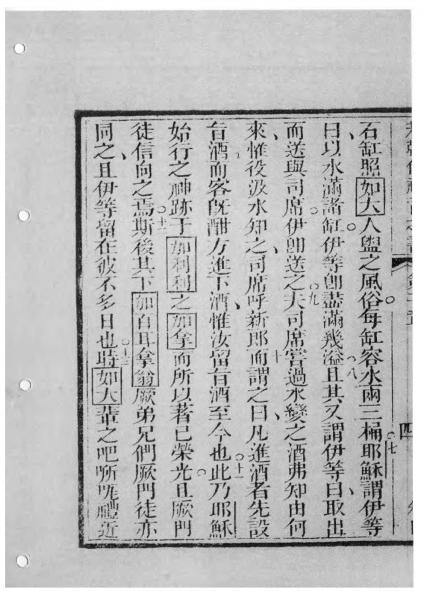 石缸照如大人盥之風俗每缸容水兩三桶耶穌謂伊等
曰以水滿諸缸伊等卽盡滿幾溢且其又謂伊等曰取出
而送與司席伊卽送之夫司席嘗過水變之酒弗知由何
來惟役汲水知之司席呼新郎而謂之曰凡進酒者先設
旨酒而客旣酣方進下酒惟汝留旨酒至今也此乃耶穌
始行之神跡于加利利之加拿而所以著己榮光且厥門
徒信向之焉斯後其下加百耳拿翁厥弟兄們厥門徒亦
同之且伊等留在彼不多日也時如大輩之吧所瓦禮近